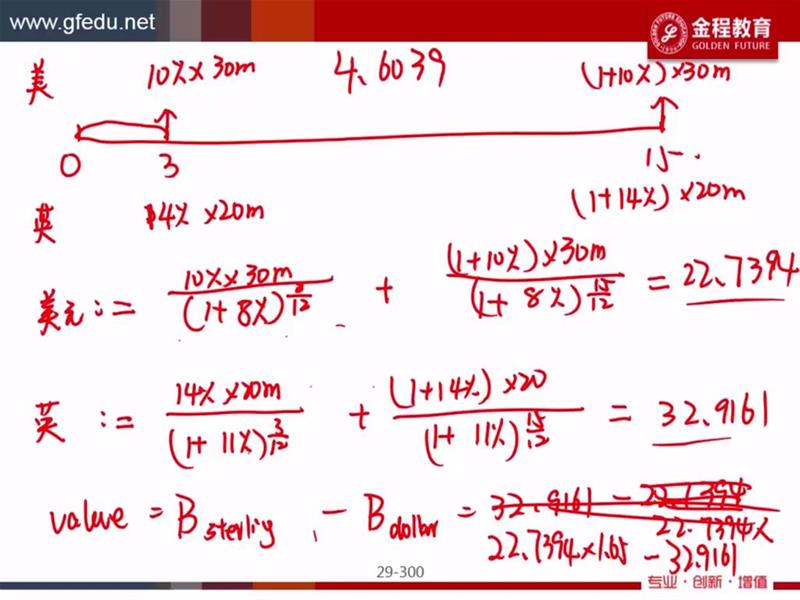 www.gfedu.net
金程教育
GOLDEN FUTURE
美 10%×30m 4.6039 (1+10%)×30m
0 3 15
英 14%×20m (1+14%)×20m
美元:= 10%×30m/(1+8%)^{3/12} + (1+10%)×30m/(1+8%)^{15/12} = 22.7394
英:= 14%×20m/(1+11%)^{3/12} + (1+14%)×20/(1+11%)^{15/12} = 32.9161
value = B sterling - B dollar = 32.9161 - 22.7394
22.7394×
22.7394×1.65 - 32.9161
29-300
专业·创新·增值